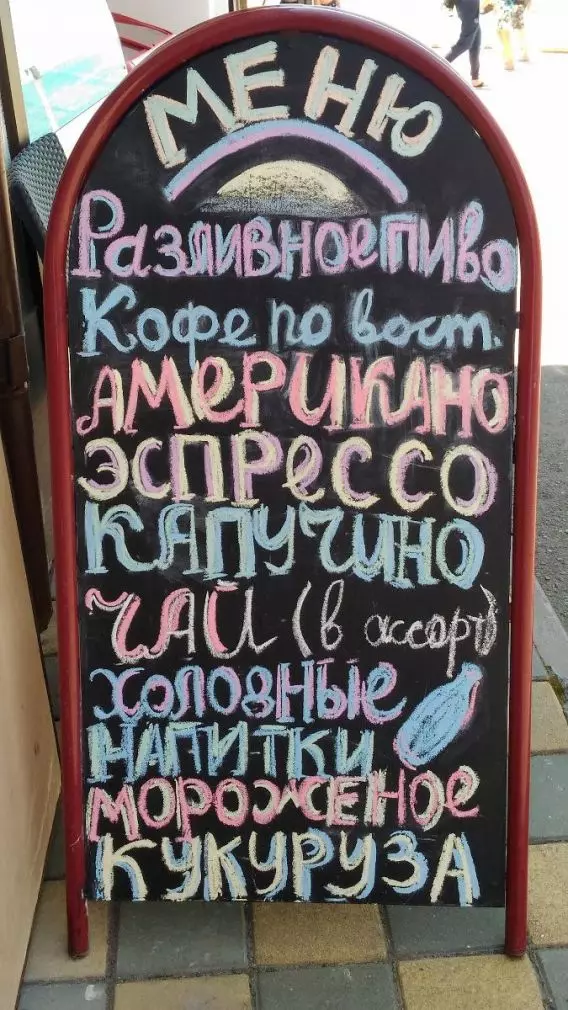 МЕНЮ
Разливное пиво
Кофе по вост.
АМЕРИКАНО
ЭСПРЕССО
КАПУЧИНО
ЧАЙ (в ассорт)
ХОЛОДНЫЕ
НАПИТКИ
МОРОЖЕНОЕ
КУКУРУЗА